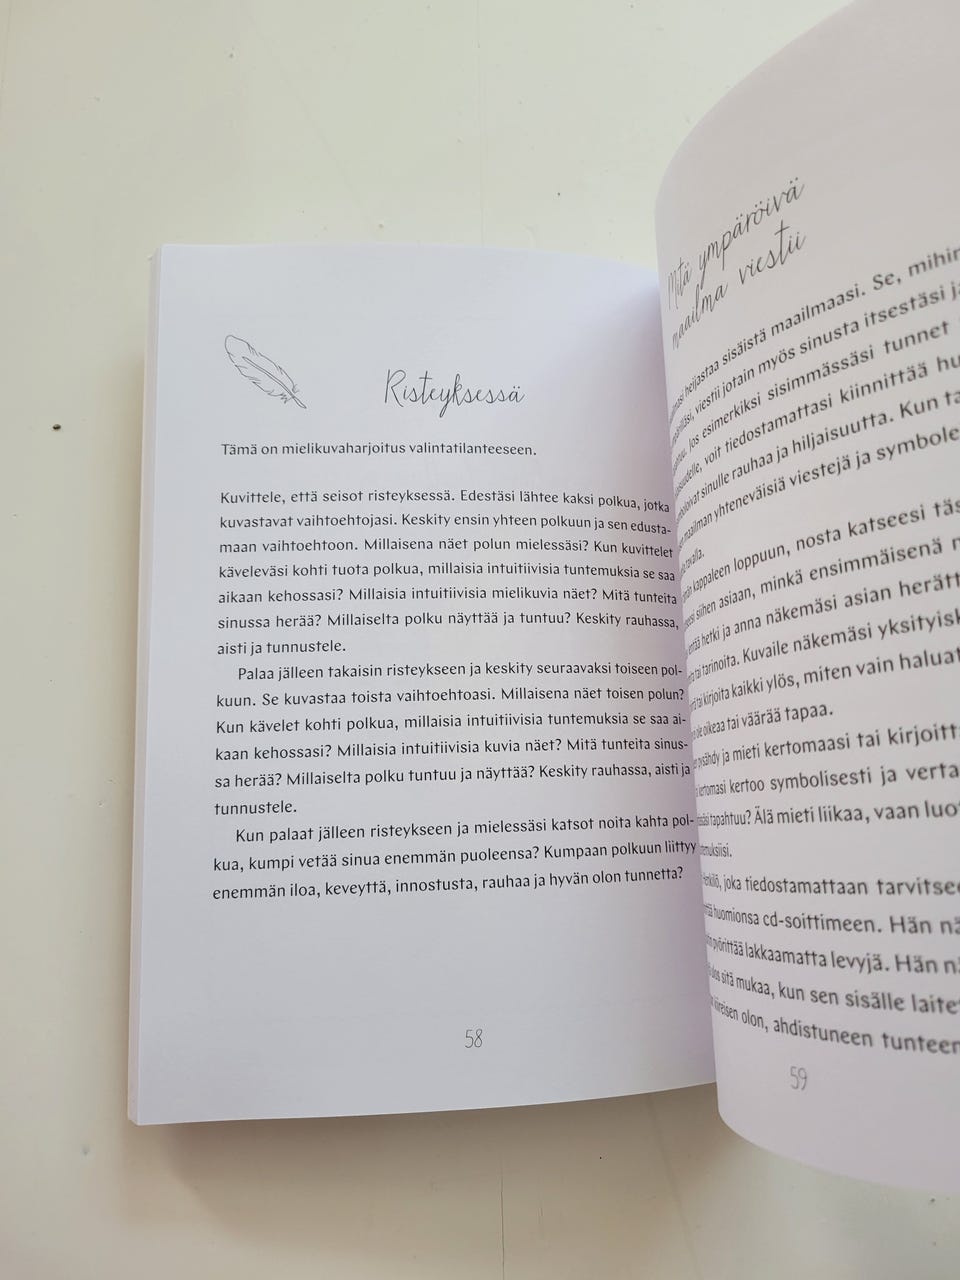 Risteyksessä
Tämä on mielikuvaharjoitus valintatilanteeseen.
Kuvittele, että seisot risteyksessä. Edestäsi lähtee kaksi polkua, jotka
kuvastavat vaihtoehtojasi. Keskity ensin yhteen polkuun ja sen edusta-
maan vaihtoehtoon. Millaisena näet polun mielessäsi? Kun kuvittelet
käveleväsi kohti tuota polkua, millaisia intuitiivisia tuntemuksia se saa
aikaan kehossasi? Millaisia intuitiivisia mielikuvia näet? Mitä tunteita
sinussa herää? Millaiselta polku näyttää ja tuntuu? Keskity rauhassa,
aisti ja tunnustele.
Palaa jälleen takaisin risteykseen ja keskity seuraavaksi toiseen pol-
kuun. Se kuvastaa toista vaihtoehtoasi. Millaisena näet toisen polun?
Kun kävelet kohti polkua, millaisia intuitiivisia tuntemuksia se saa ai-
kaan kehossasi? Millaisia intuitiivisia kuvia näet? Mitä tunteita sinus-
sa herää? Millaiselta polku tuntuu ja näyttää? Keskity rauhassa, aisti ja
tunnustele.
Kun palaat jälleen risteykseen ja mielessäsi katsot noita kahta pol-
kua, kumpi vetää sinua enemmän puoleensa? Kumpaan polkuun liittyy
enemmän iloa, keveyttä, innostusta, rauhaa ja hyvän olon tunnetta?
58
Mitä ympäröivä
maailma viestii
heijastaa sisäistä maailmaasi. Se, mihin
viestii jotain myös sinusta itsestäsi
Jos esimerkiksi sisimmässäsi tunnet
voit tiedostamattasi kiinnittää
sinulle rauhaa ja hiljaisuutta. Kun
maailman yhteneväisiä viestejä ja
tavalla.
kappaleen loppuun, nosta katseesi
siihen asiaan, minkä ensimmäisenä
hetki ja anna näkemäsi asian
tai tarinoita. Kuvaile näkemäsi
tai kirjoita kaikki ylös, miten vain
ole oikeaa tai väärää tapaa.
pysähdy ja mieti kertomaasi tai
kertomasi kertoo symbolisesti ja
tapahtuu? Älä mieti liikaa, vaan
joka tiedostamattaan
huomionsa cd-soittimeen. Hän
pyörittää lakkaamatta levyjä. Hän
ulos sitä mukaa, kun sen sisälle
kiireisen olon, ahdistuneen
59